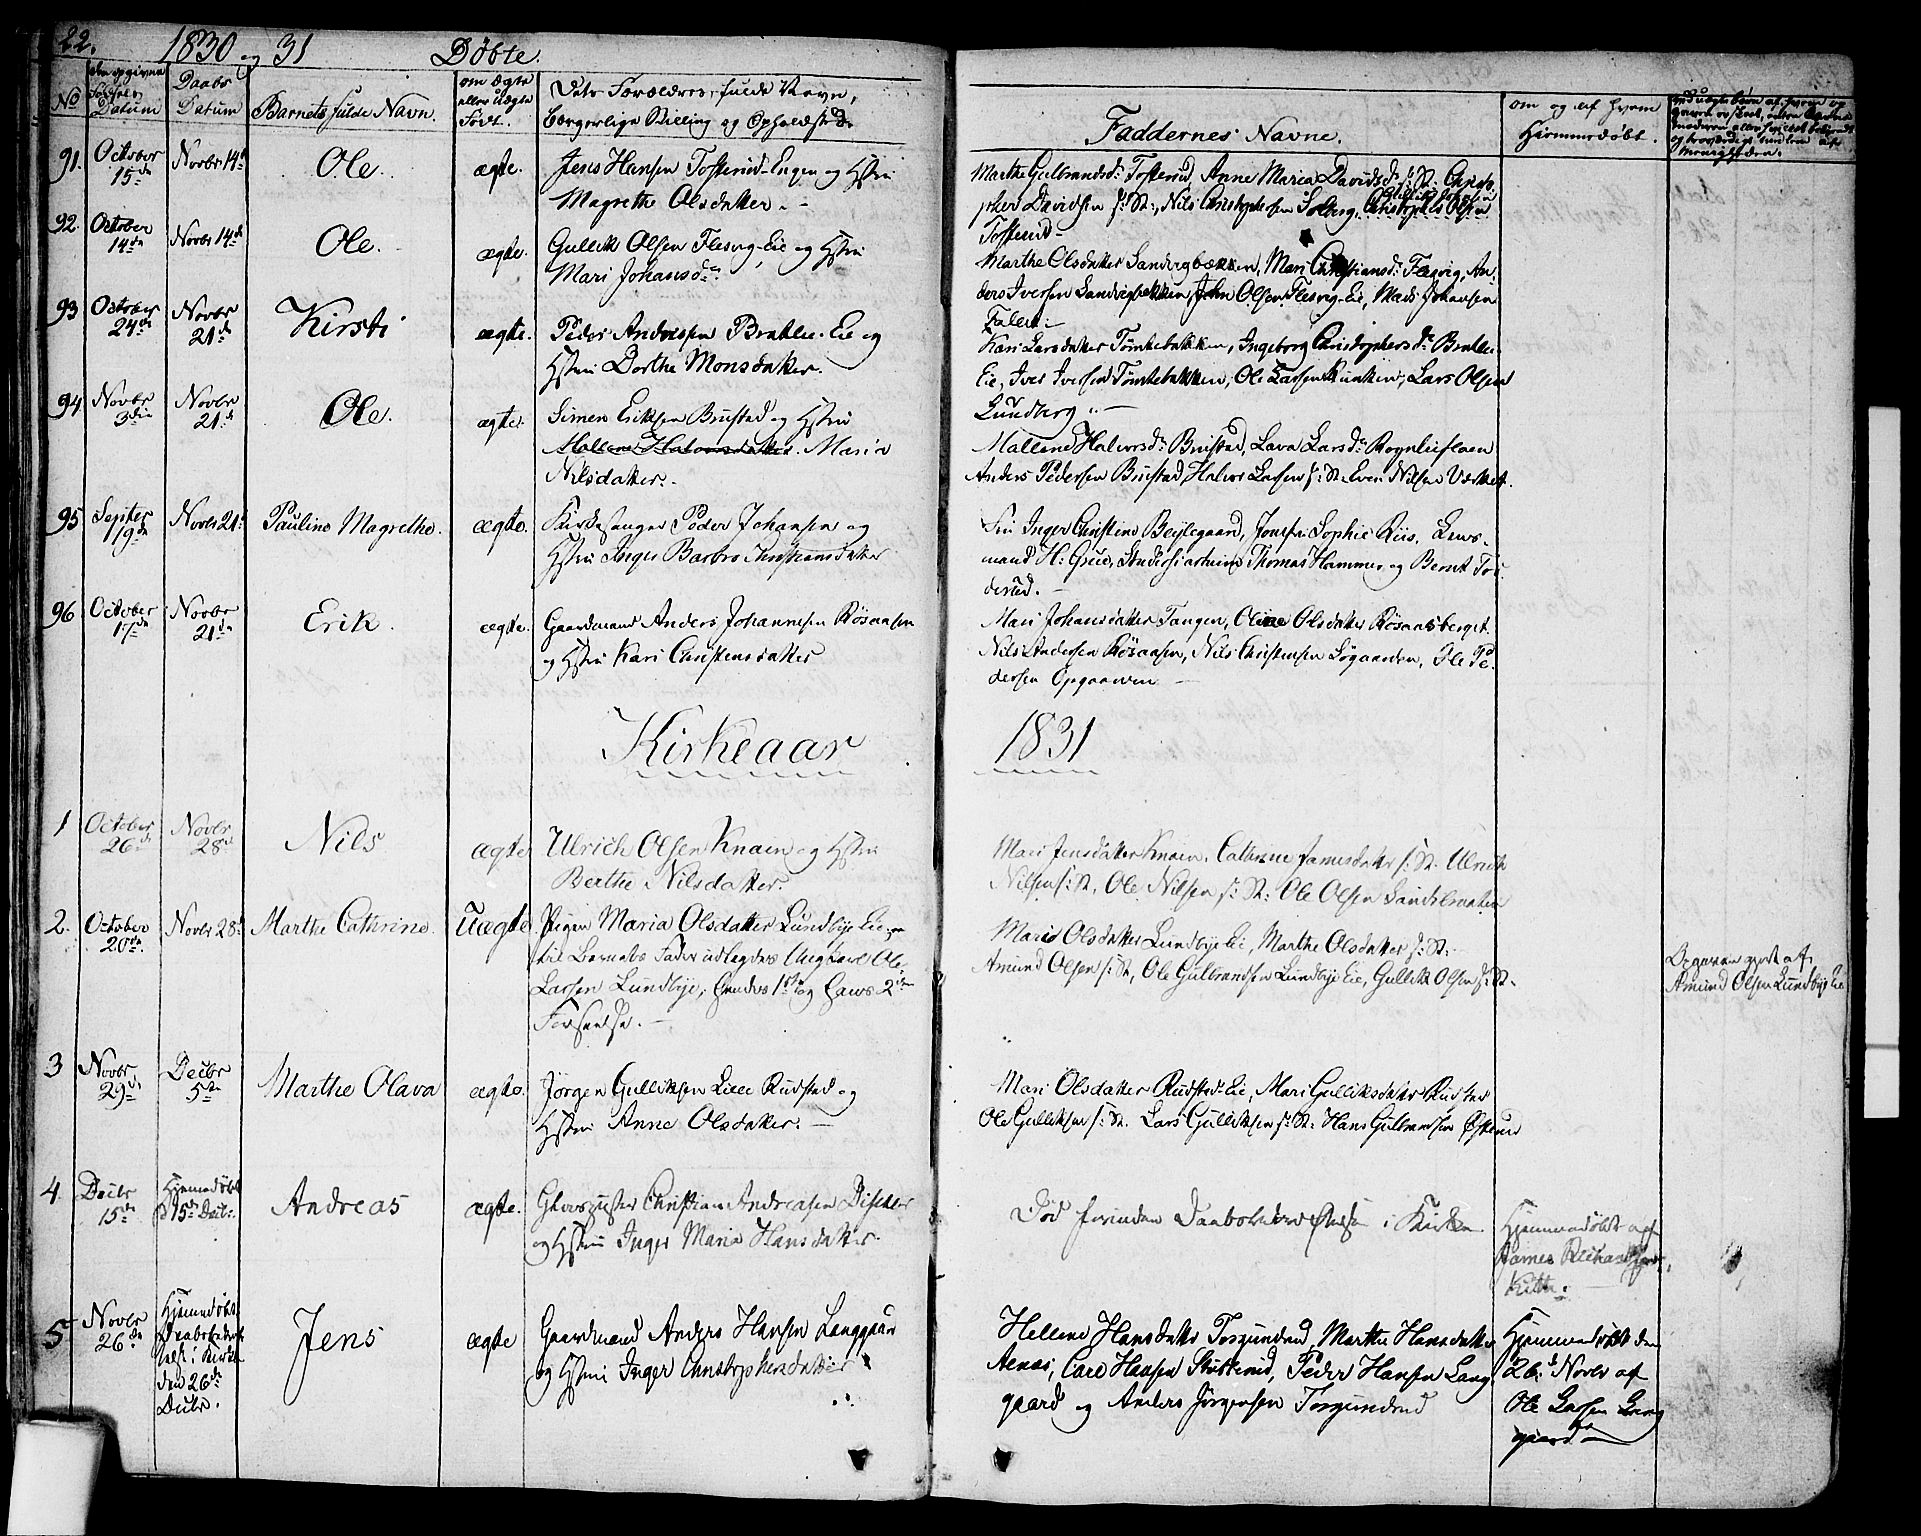 22. 1830 og 31 Døbte.
No
Datum
Daabs
Datum
Barnets fulde Navn.
om ægte
eller uægte
Født.
Dets Forældres fulde Navn,
Borgerlige Stilling og Opholdsted
Faddernes Navne.
om og af hvem
Hjemmedøbt.
91. October 15de Novbr 14de Ole. ægte. Jens Hansen Tosterud-Engen og Hstru
Magrethe Olsdatter.
Marthe Gulbrandsd: Tosterud, Anne Maria Davidsd: s: St: Christo-
pher Davidsen s: St:, Nils Christophersen Solberg, Christopher Olsen
Tosterud
92. October 14de Novbr 14de Ole. ægte. Gullik Olsen Flesvig-Eie og Hstru
Mari Johansdr
Marthe Olsdatter Sandvigbækken, Mari Christiansd: Flesvig, An-
ders Iversen Sandvigbækken, John Olsen Flesvig-Eie, Mads Johansen
Falen
93 October 24de Novbr 21de Kirsti ægte. Peder Andersen Brathe-Eie og
Hstru Dorthe Monsdatter.
Kari Larsdatter Tømtebakken, Ingeborg Christophersdr
Eie, Iver Iversen Tømtebakken, Ole Larsen Runken, Lars Olsen
Lundberg
94 Novbr 3die Novbr 21de Ole. ægte. Simen Eriksen Brustad og Hstru
Mallene Halvorsdatter. Maria
Nilsdatter.
Mallene Halvorsd: Brustad, Lava Larsd:
Anders Pedersen Brustad, Halvor Larsen s: St: Even Nilsen Værket.
95 Septbr 19de Novbr 21de Pauline Magrethe. ægte. Kirkesanger Peder Johansen og
Hstru Inger Barbro Christiansdatter
Fru Inger Christine Beylegaard, Jomfru Sophie Riis, Lens-
mand H: Grue, Thomas Hammer og Bernt To-
derud.
96 October 17de Novbr 21de Erik. ægte. Gaardmand Anders Johannesen Røsaasen
og Hstru Kari Christensdatter
Mari Johansdatter Tangen, Oline Olsdatter Røsaasberget.
Nils Andersen Røsaasen, Nils Christensen Søgaarden, Ole Pe-
dersen Opgaarden
Kirkeaar 1831
1 October 26de Novbr 28de Nils ægte Ulrich Olsen Knain og Hstru
Berthe Nilsdatter.
Mari Jensdatter Knain, Cathrine Jamesdatter s: St: Ulrich
Nilsen s: St, Ole Nilsen s: St: Ole Olsen
2. October 20de Novbr 28de Marthe Cathrine. Uægte Pigen Maria Olsdatter Lundbye Eie
til Barnets Fader udlagdes Ungkarl Ole
Larsen Lundbye, hendes 1ste og hans 2den
Forseelse.
Mari Olsdatter Lundbye Eie, Marthe Olsdatter s: St:
Amund Olsen s: St, Ole Gulbrandsen Lundbye Eie, Gullik Olsen s: St.
Amund Olsen Lundbye Eie
3 Novbr 29de Decbr 5te Marthe Olava ægte. Jørgen Gulliksen Lille Rudstad og
Hstru Anne Olsdatter.
Mari Olsdatter Rudstad-Eie, Mari Gulliksdatter
Ole Gulliksen s: St. Lars Gulliksen s: St: Hans Gulbrandsen Østerud
4 Decbr 15de Hjemmedøbt
d 15de Decbr. Andreas ægte. Glaspuster Christian Andreasen Discher
og Hstru Inger Maria Hansdatter.
Død forinden i Kirken
Hjemmedøbt af
James
5 Novbr 26de Hjemmedøbt
i Kirken
den 26de
Decbr. Jens ægte Gaardmand Anders Hansen Langgaard
og Hstru Inger Christophersdatter
Hellene Hansdatter Torgunrud, Marthe Hansdatter
Aenæs, Care Hansen Stubberud, Peder Hansen Lang-
gaard og Anders Jørgensen Torgunrud
Hjemmedøbt den
26de Novbr af
Ole Larsen Lang-
gaard